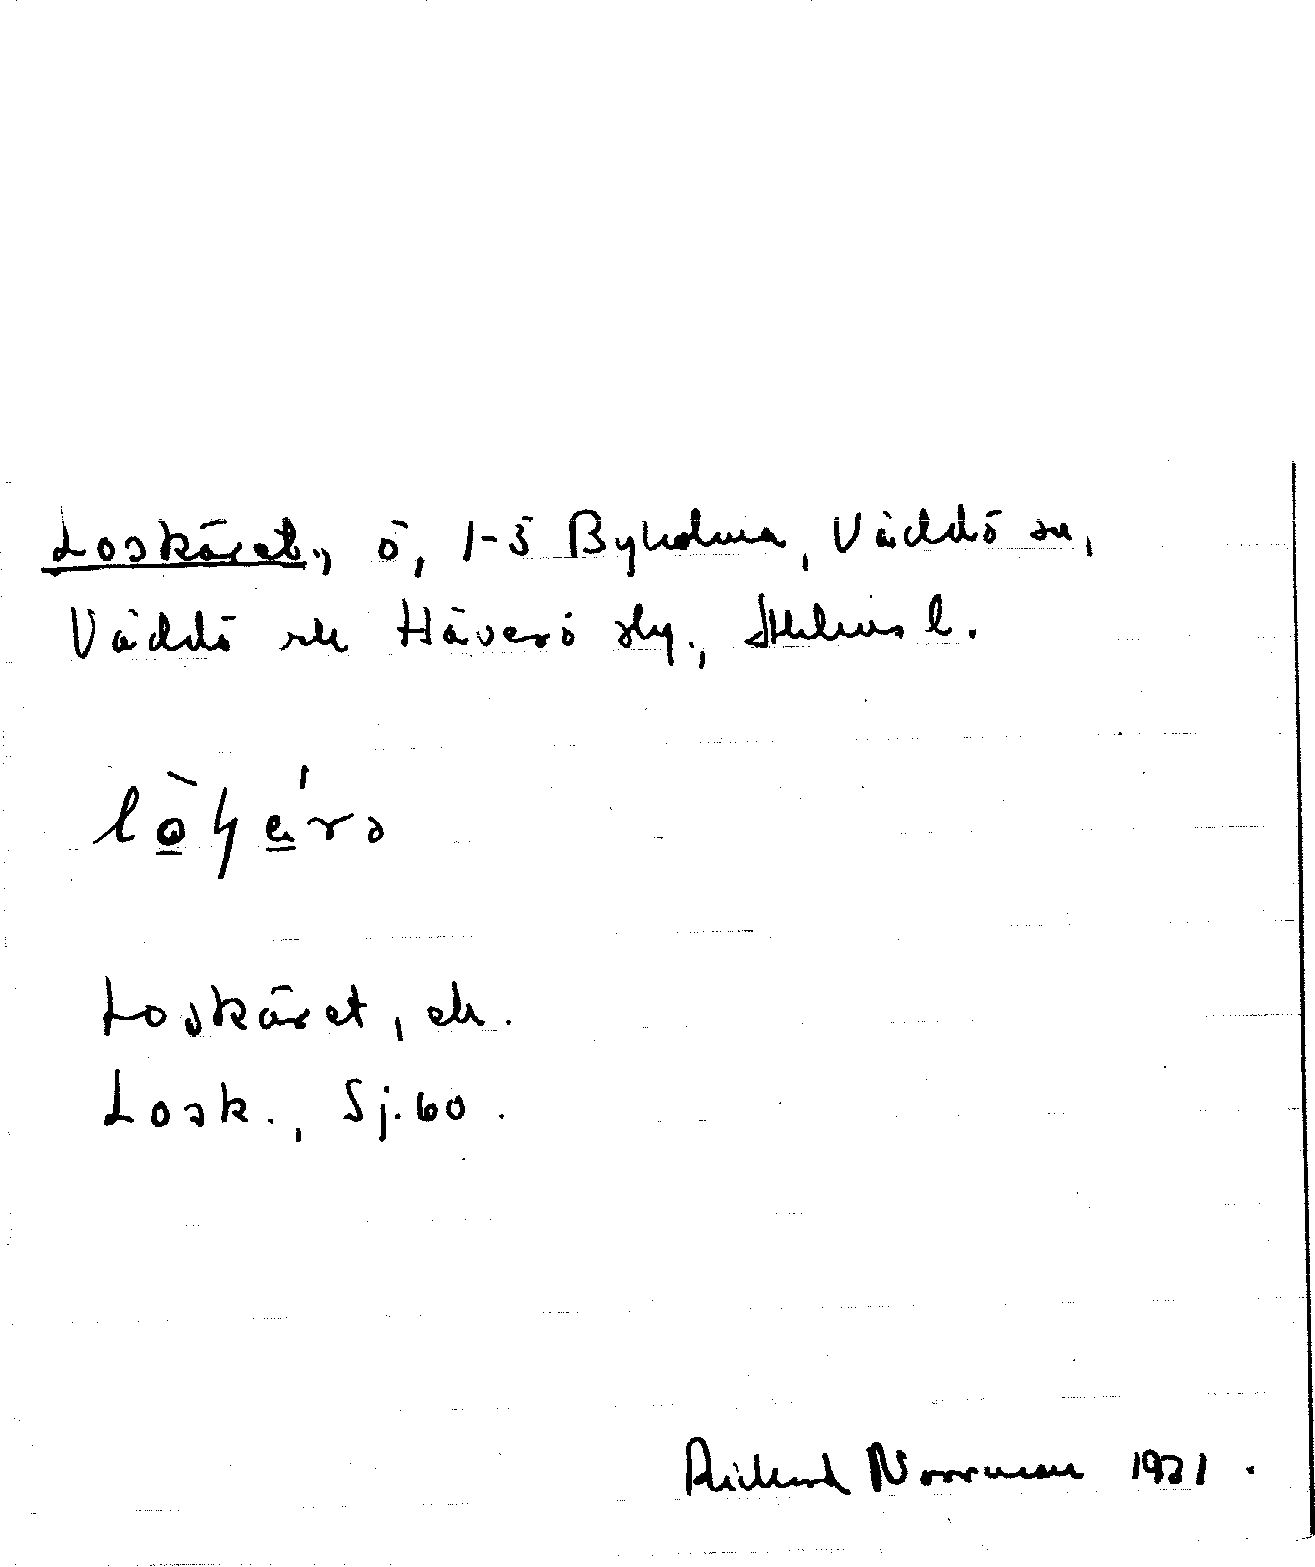 Loskäret, ö, 1-3 Byholma, Väddö sn,
Väddö och Häverö skg., Sthlms l.
Loskäret, ek.
Losk., Sj. 60.
Rickard Noorman 1931.